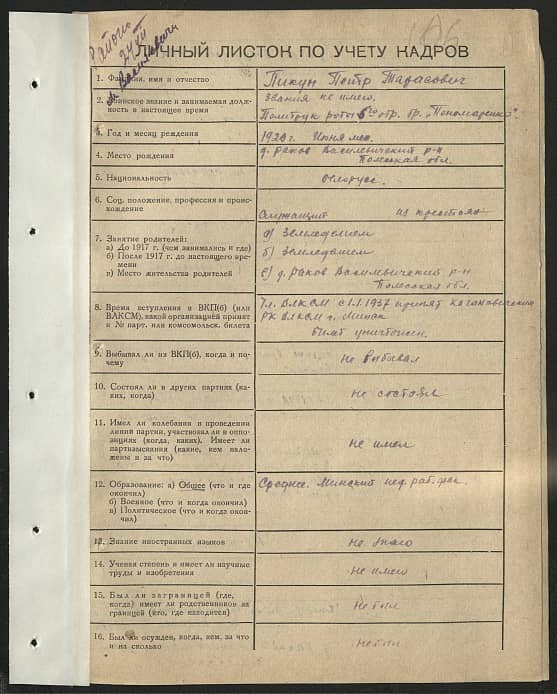 Района
м. Василевичи
ЛИЧНЫЙ ЛИСТОК ПО УЧЕТУ КАДРОВ
1. Фамилия, имя и отчество
Пикун Петр Тарасович
2. Воинское звание и занимаемая долж-
ность в настоящее время
Звания не имею.
Политрук роты 5го отр. бр. „Пономаренко“.
3. Год и месяц рождения
1920 г. Июня мес.
4. Место рождения
д. Раков Василевичский р-н
Полесская обл.
5. Национальность
белорус.
6. Соц. положение, профессия и проис-
хождение
Служащий из крестьян
7. Занятие родителей:
а) До 1917 г. (чем занимались и где)
б) После 1917 г. до настоящего вре-
мени
в) Место жительства родителей
а) Земледелием
б) Земледелием
в) д. Раков Василевичский р-н
Полесская обл.
8. Время вступления в ВКП(б) (или
ВЛКСМ), какой организацией принят
и № парт. или комсомольск. билета
Чл. ВЛКСМ с 1.1.1937 принят Кагановичским
РК ВЛКСМ г. Минск
билет уничтожен.
9. Выбывал ли из ВКП(б), когда и по-
чему
Не выбывал
10. Состоял ли в других партиях (ка-
ких, когда)
Не состоял
11. Имел ли колебания в проведении
линии партии, участвовал ли в оппо-
зициях (когда, каких). Имеет ли
партвзыскания (какие, кем нало-
жены и за что)
не имел
12. Образование: а) Общее (что и где
окончил)
б) Военное (что и когда окончил)
в) Политическое (что и когда окон-
чил)
Среднее. Минский пед. рабфак.
13. Знание иностранных языков
не знаю
14. Ученая степень и имеет ли научные
труды и изобретения
Не имею
15. Был ли заграницей (где,
когда) имеет ли родственников за
границей (кто, где находится)
Не был
16. Был ли осужден, когда, кем, за что
и на сколько
не был